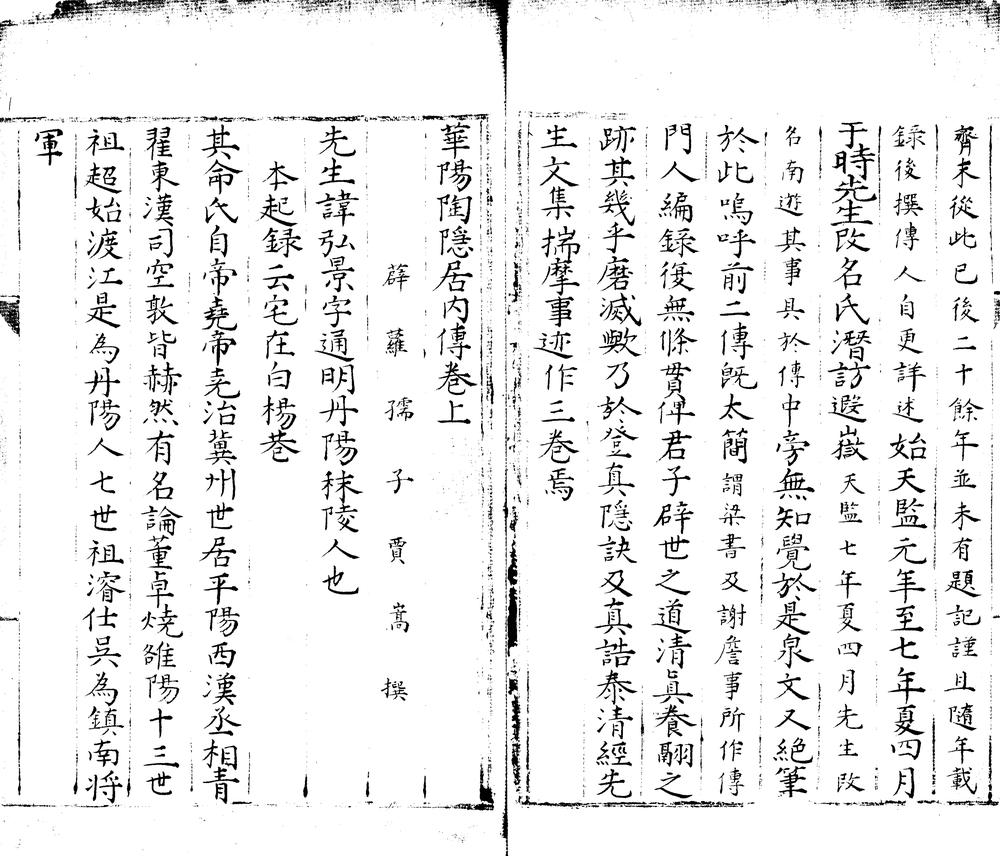 齊末從此已後二十餘年並未有題記謹且隨年載
録後撰傳人自更詳述始天監元年至七年夏四月
于時先生改名氏潛訪遐嶽天監七年夏四月先生改
名南遊其事具於傳中旁無知覺於是泉文又絕筆
於此嗚呼前二傳旣太簡謂梁書及謝詹事所作傳
門人編録復無條貫俾君子辟世之道清眞養翮之
跡其幾乎磨滅歟乃於登真隱訣及真誥泰清經先
生文集揣摩事迹作三卷焉
華陽陶隱居内傳卷上
薜蘿孺子賈嵩撰
先生諱弘景字通明丹陽秣陵人也
本起録云宅在白楊巷
其命氏自帝堯帝堯治冀州世居平陽西漢丞相青
翟東漢司空敦皆赫然有名論董卓燒雒陽十三世
祖超始渡江是為丹陽人七世祖濬仕吳為鎮南将
軍